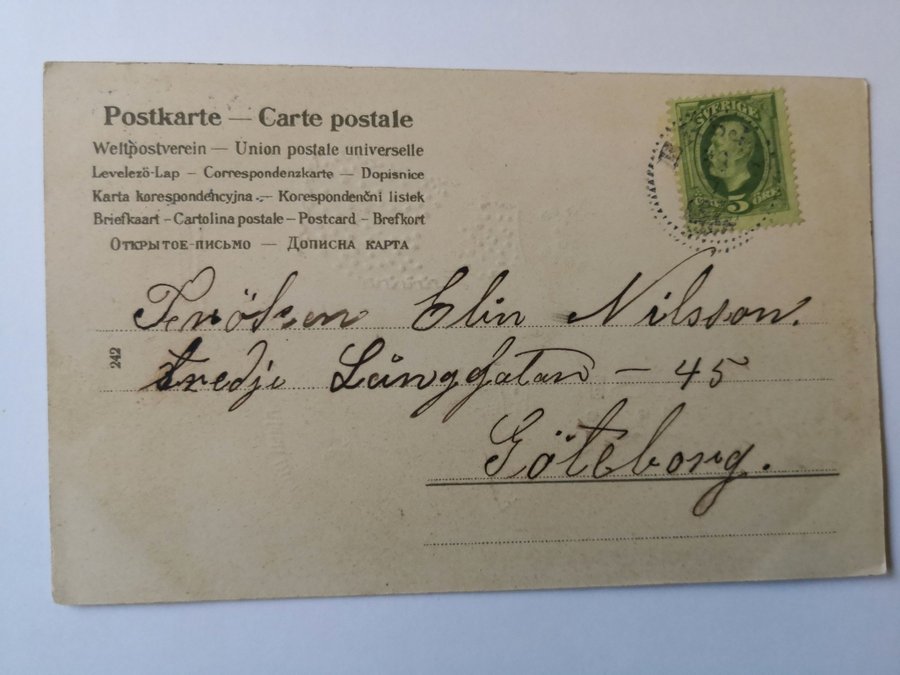 Postkarte — Carte postale
Weltpostverein — Union postale universelle
Levelezö-Lap – Correspondenzkarte — Dopisnice
Karta korespondencyjna – Korespondenční listek
Briefkaart – Cartolina postale – Postcard – Brefkort
Открытое-письмо — Дописна карта
SVERIGE
5 ÖRE
Fröken Elin Nilsson.
242
tredje Långgatan – 45
Göteborg.